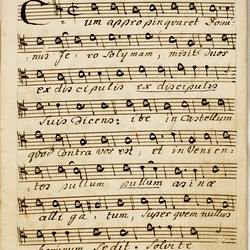 Cum appropinquaret Domi:
nus Jerosolymam, misit duos
ex discipulis ex discipulis
suis Dicens: ite in Castellum
quod Contra vos est, et in Venien:
tes pullum pullum asinæ
alli ga: tum, super quem nullus
hominum Sedit. Solvite